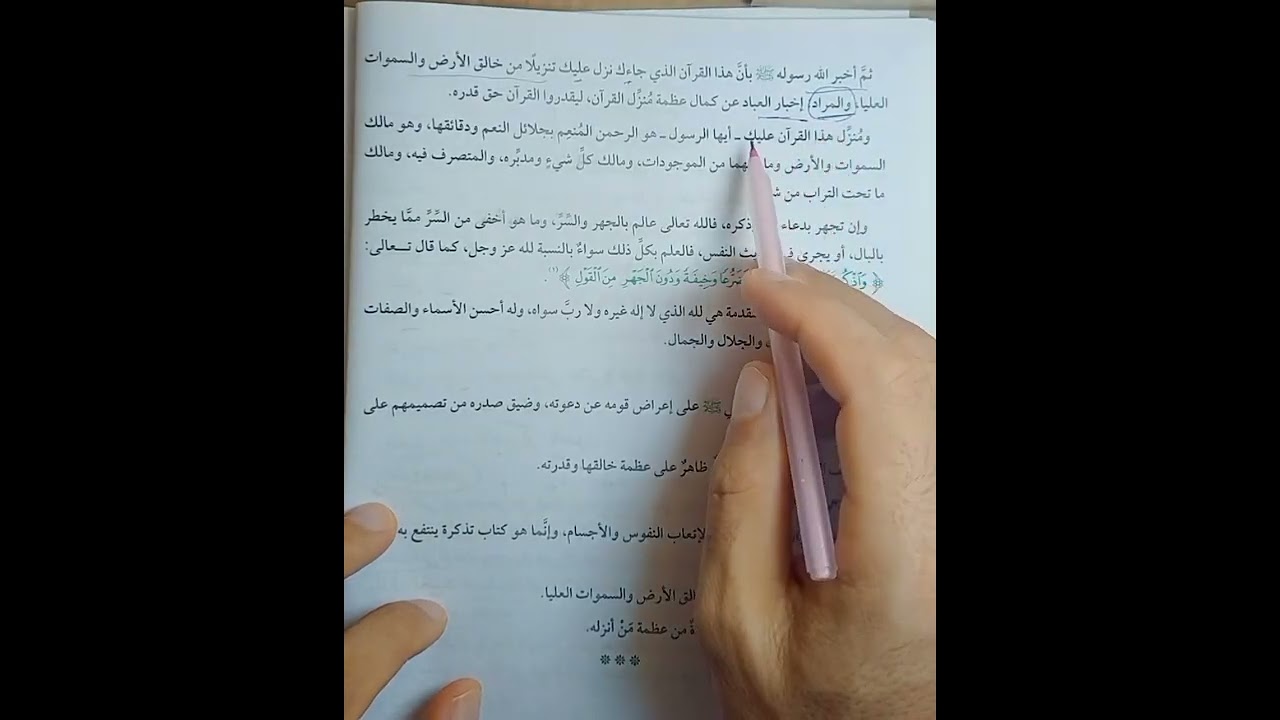 ثمَّ أخبر الله رسوله ﷺ بأنَّ هذا القرآن الذي جاءك نزل عليك تنزيلًا من خالق الأرض والسموات
العليا، والمراد إخبار العباد عن كمال عظمة مُنزِّل القرآن، ليقدروا القرآن حق قدره.
ومُنزِّل هذا القرآن عليك ـ أيها الرسول ـ هو الرحمن المُنعِم بجلائل النعم ودقائقها، وهو مالك
السموات والأرض وما من الموجودات، ومالك كلِّ شيءٍ ومدبِّره، والمتصرف فيه، ومالك
ما تحت التراب من
وإن تجهر بدعاء ذكره، فالله تعالى عالم بالجهر والسِّرِّ، وما هو أخفى من السِّرِّ ممَّا يخطر
بالبال، أو يجري النفس، فالعلم بكلِّ ذلك سواءٌ بالنسبة لله عز وجل، كما قال تعالى:
﴿ وَٱذۡكُر وَخِيفَةٗ وَدُونَ ٱلۡجَهۡرِ مِنَ ٱلۡقَوۡلِ ﴾(١).
هي لله الذي لا إله غيره ولا ربَّ سواه، وله أحسن الأسماء والصفات
والجلال والجمال.
ﷺ على إعراض قومه عن دعوته، وضيق صدره من تصميمهم على
ظاهرٌ على عظمة خالقها وقدرته.
لإتعاب النفوس والأجسام، وإنَّما هو كتاب تذكرة ينتفع به
الأرض والسموات العليا.
من عظمة مَنْ أنزله.